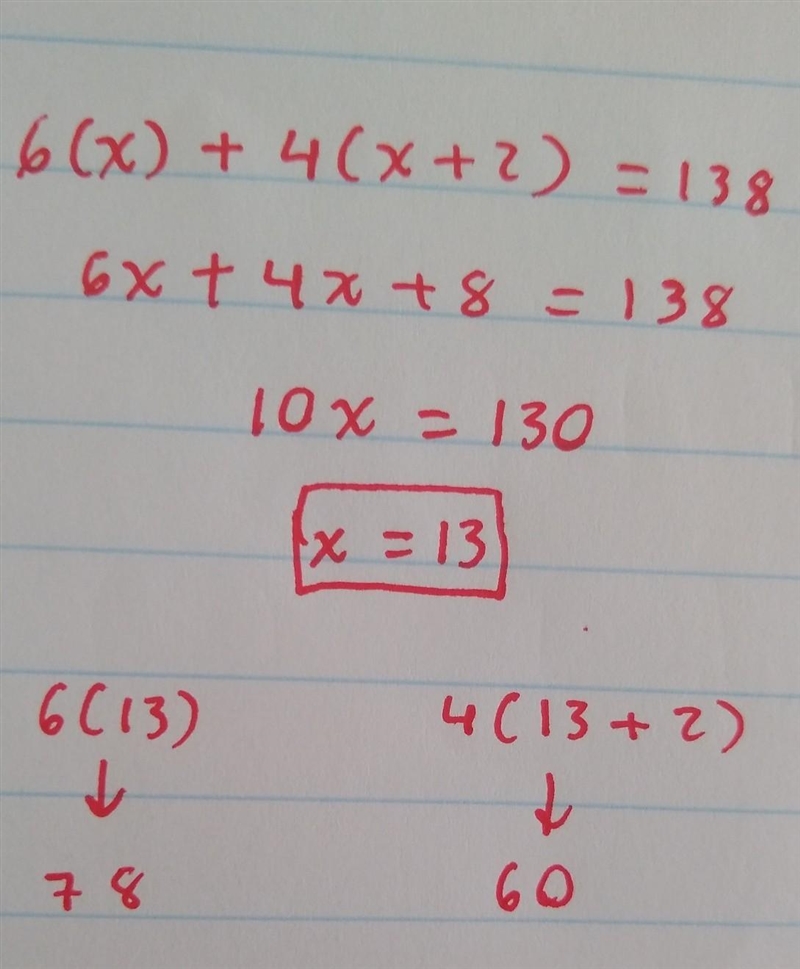 6(x) + 4(x+2) = 138
6x + 4x + 8 = 138
10x = 130
x = 13
6(13) 4(13+2)
↓ ↓
78 60